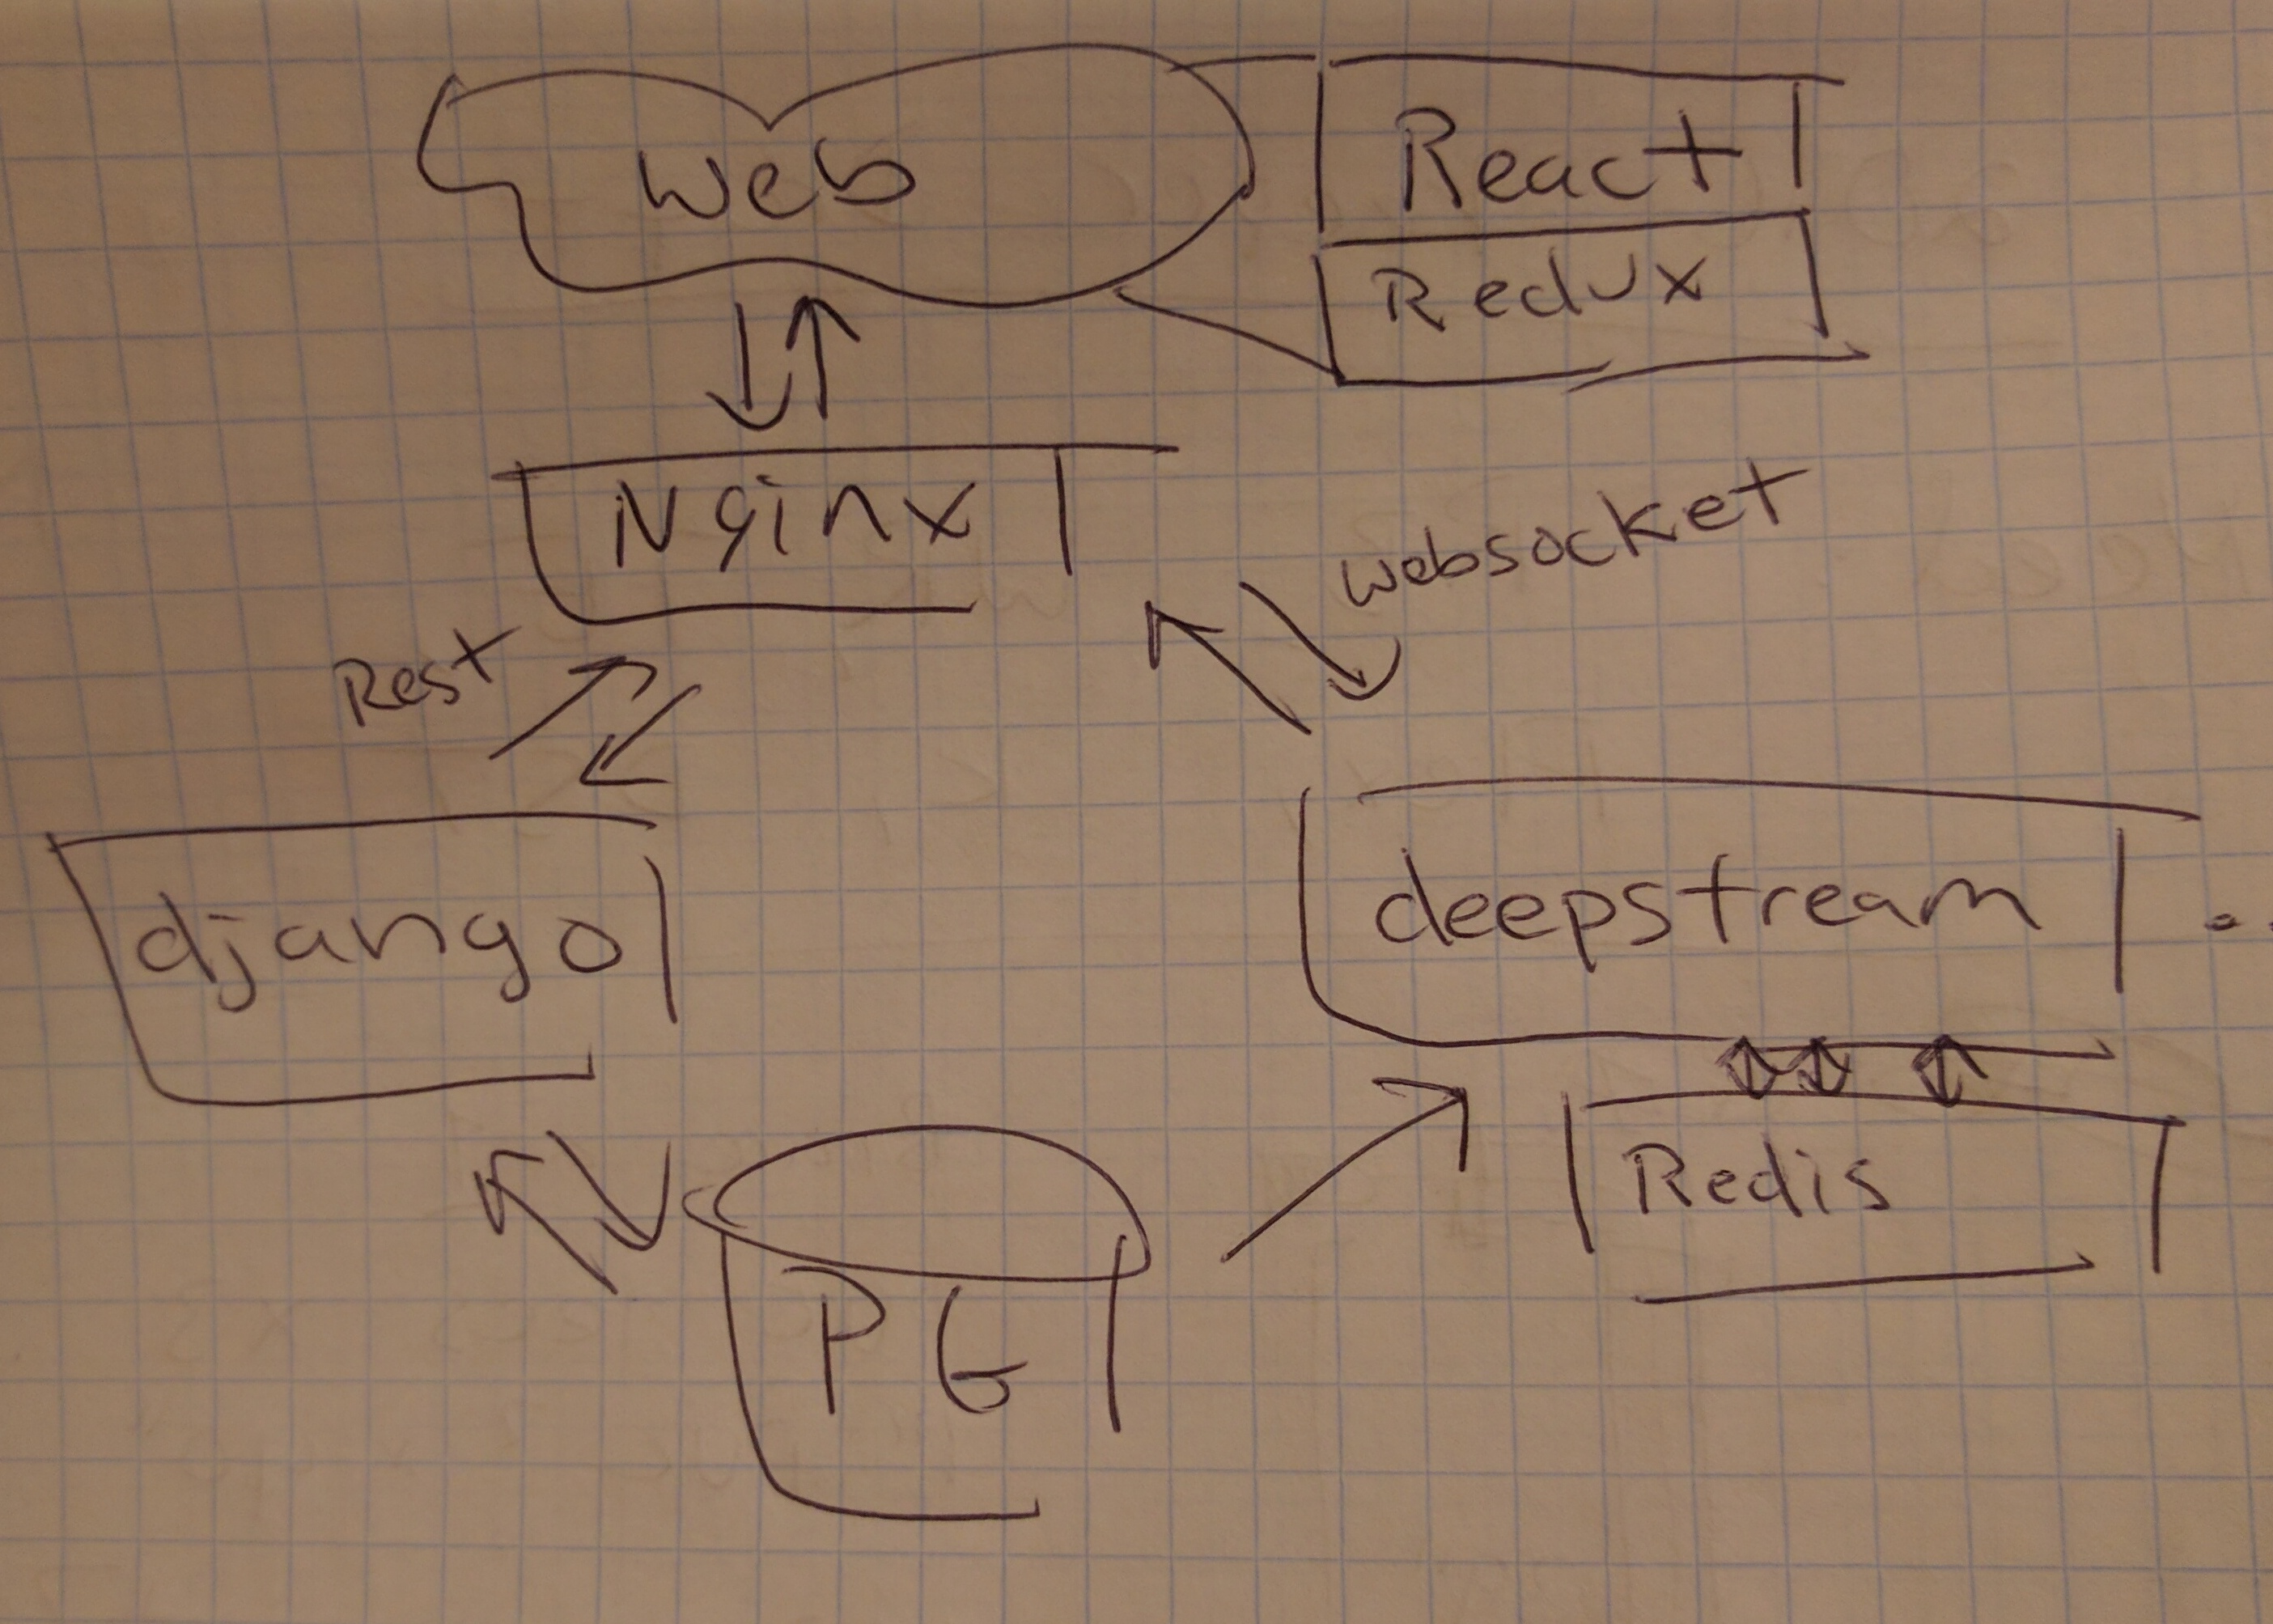 Web
React
Redux
Nginx
websocket
Rest
django
deepstream ..
Redis
PG